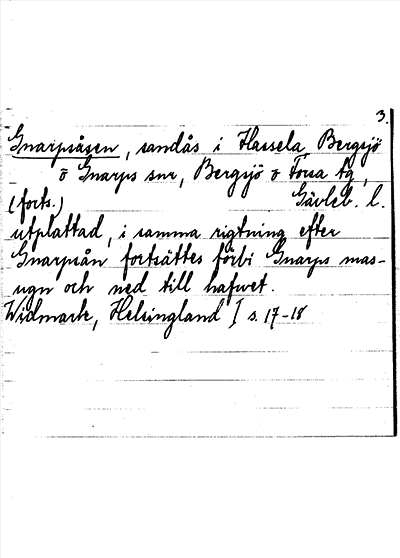 3.
Gnarpsåsen, sandås i Hassela, Bergsjö
o Gnarps snr, Bergsjö o Forsa tg,
(forts.) Gävleb. l.
utplattad, i samma rigtning efter
Gnarpsån fortsättes förbi Gnarps mas-
ugn och ned till hafwet.
Widmark, Helsingland I s. 17-18